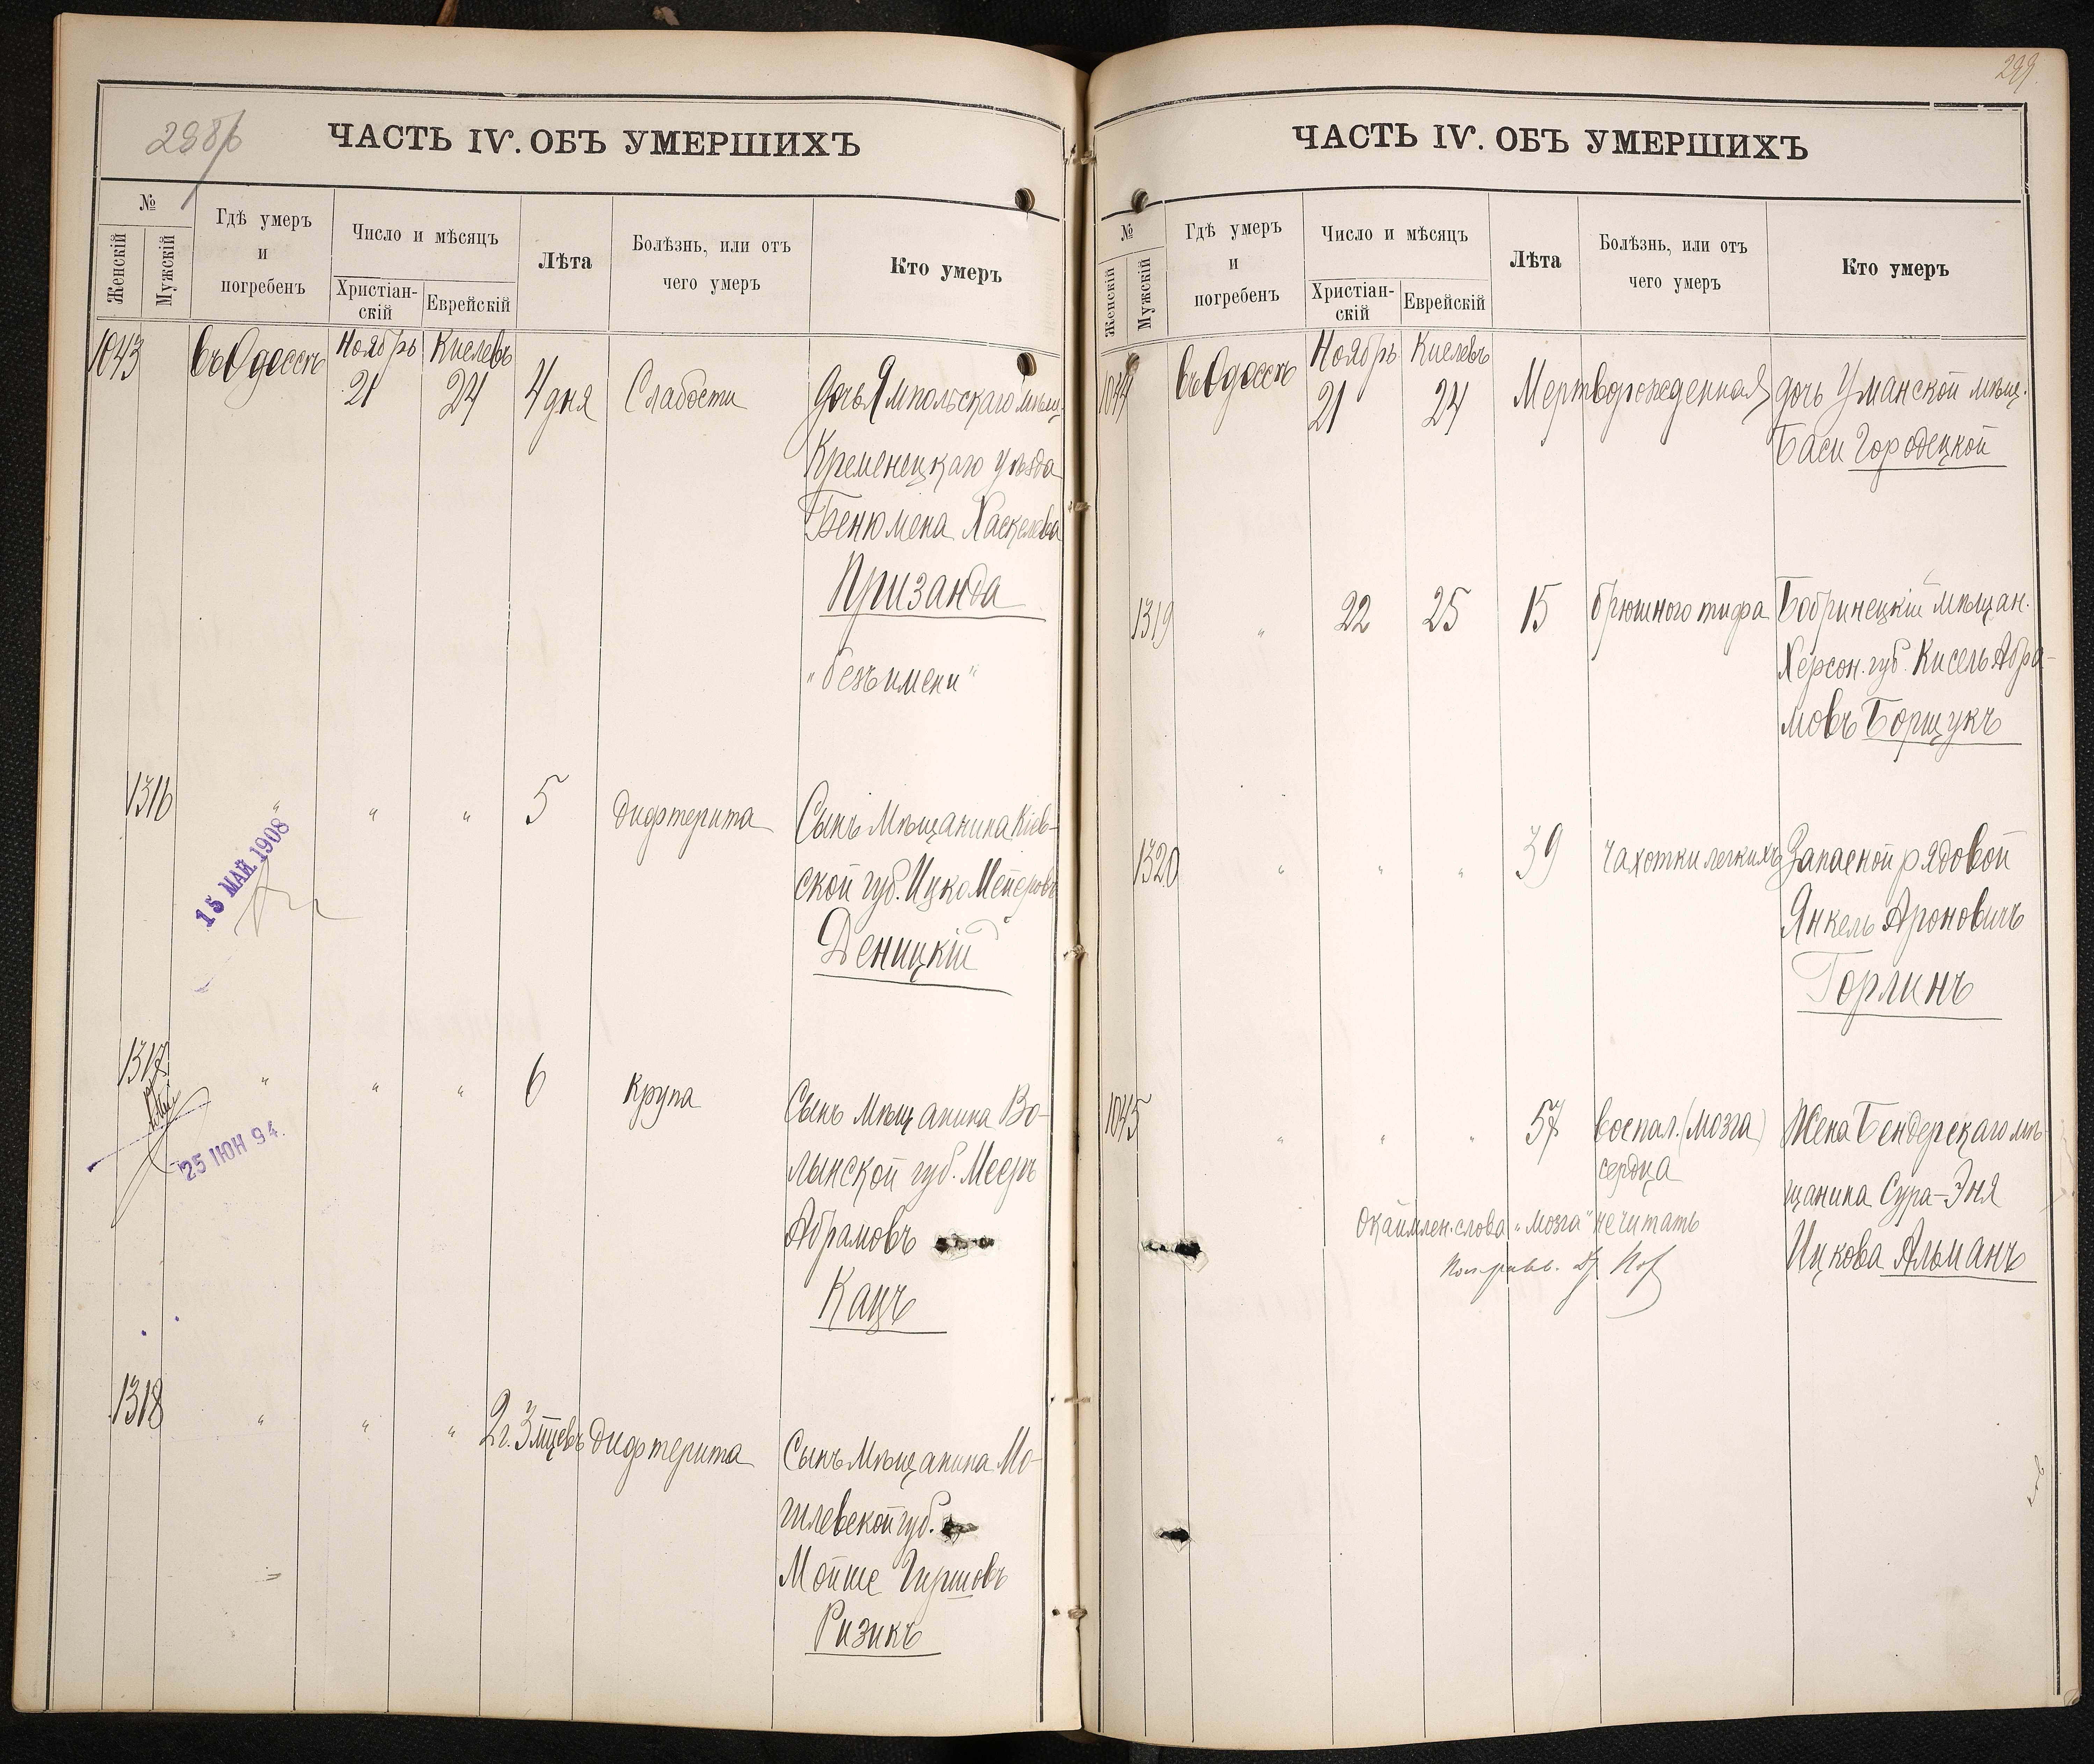 ЧАСТЬ IV. ОБЪ УМЕРШИХЪ
№
Женскій
Мужскій
Гдѣ умеръ
и
погребенъ
Число и мѣсяцъ
Христіан-
скій
Еврейскій
Лѣта
Болѣзнь, или отъ
чего умеръ
Кто умеръ
1043
въ Одессѣ
Ноябрь
21
Кислевъ
24
4 дня
Слабости
Дочь Ямпольскаго мѣщ.
Кременецкаго уѣзда
Бенюмена Хаскелева
Призанда
"безъ имени"
1316
" " "
5
Дифтерита
Сынъ Мѣщанина Кіев-
ской губ. Ицко Мейеровъ
Деницкій
15 МАЙ 1908
1317
" " "
6
Крупа
Сынъ Мѣщанина Во-
лынской губ. Мееръ
Абрамовъ
Кацъ
25 ІЮН 94.
1318
" " "
2 г. 3 мцевъ
Дифтерита
Сынъ Мѣщанина Мо-
гилевской губ.
Мойше Гиршовъ
Ризикъ
299.
ЧАСТЬ IV. ОБЪ УМЕРШИХЪ
№
Женскій
Мужскій
Гдѣ умеръ
и
погребенъ
Число и мѣсяцъ
Христіан-
скій
Еврейскій
Лѣта
Болѣзнь, или отъ
чего умеръ
Кто умеръ
1044
въ Одессѣ
Ноябрь
21
Кислевъ
24
Мертворожденная
дочь Уманской мѣщ.
Баси Городецкой
1319
"
22
25
15
брюшного тифа
Бобринецкій мѣщан.
Херсон. губ. Кисель Абра-
мовъ Борщукъ
1320
" " "
39
чахотки легкихъ
Запасной рядовой
Янкель Ароновичъ
Горлинъ
1045
" " "
57
воспал. (мозга)
сердца
Жена Бендерскаго мѣ-
щанина Сура-Эня
Ицкова Альманъ
Окаймлен. слова "мозга" не читать